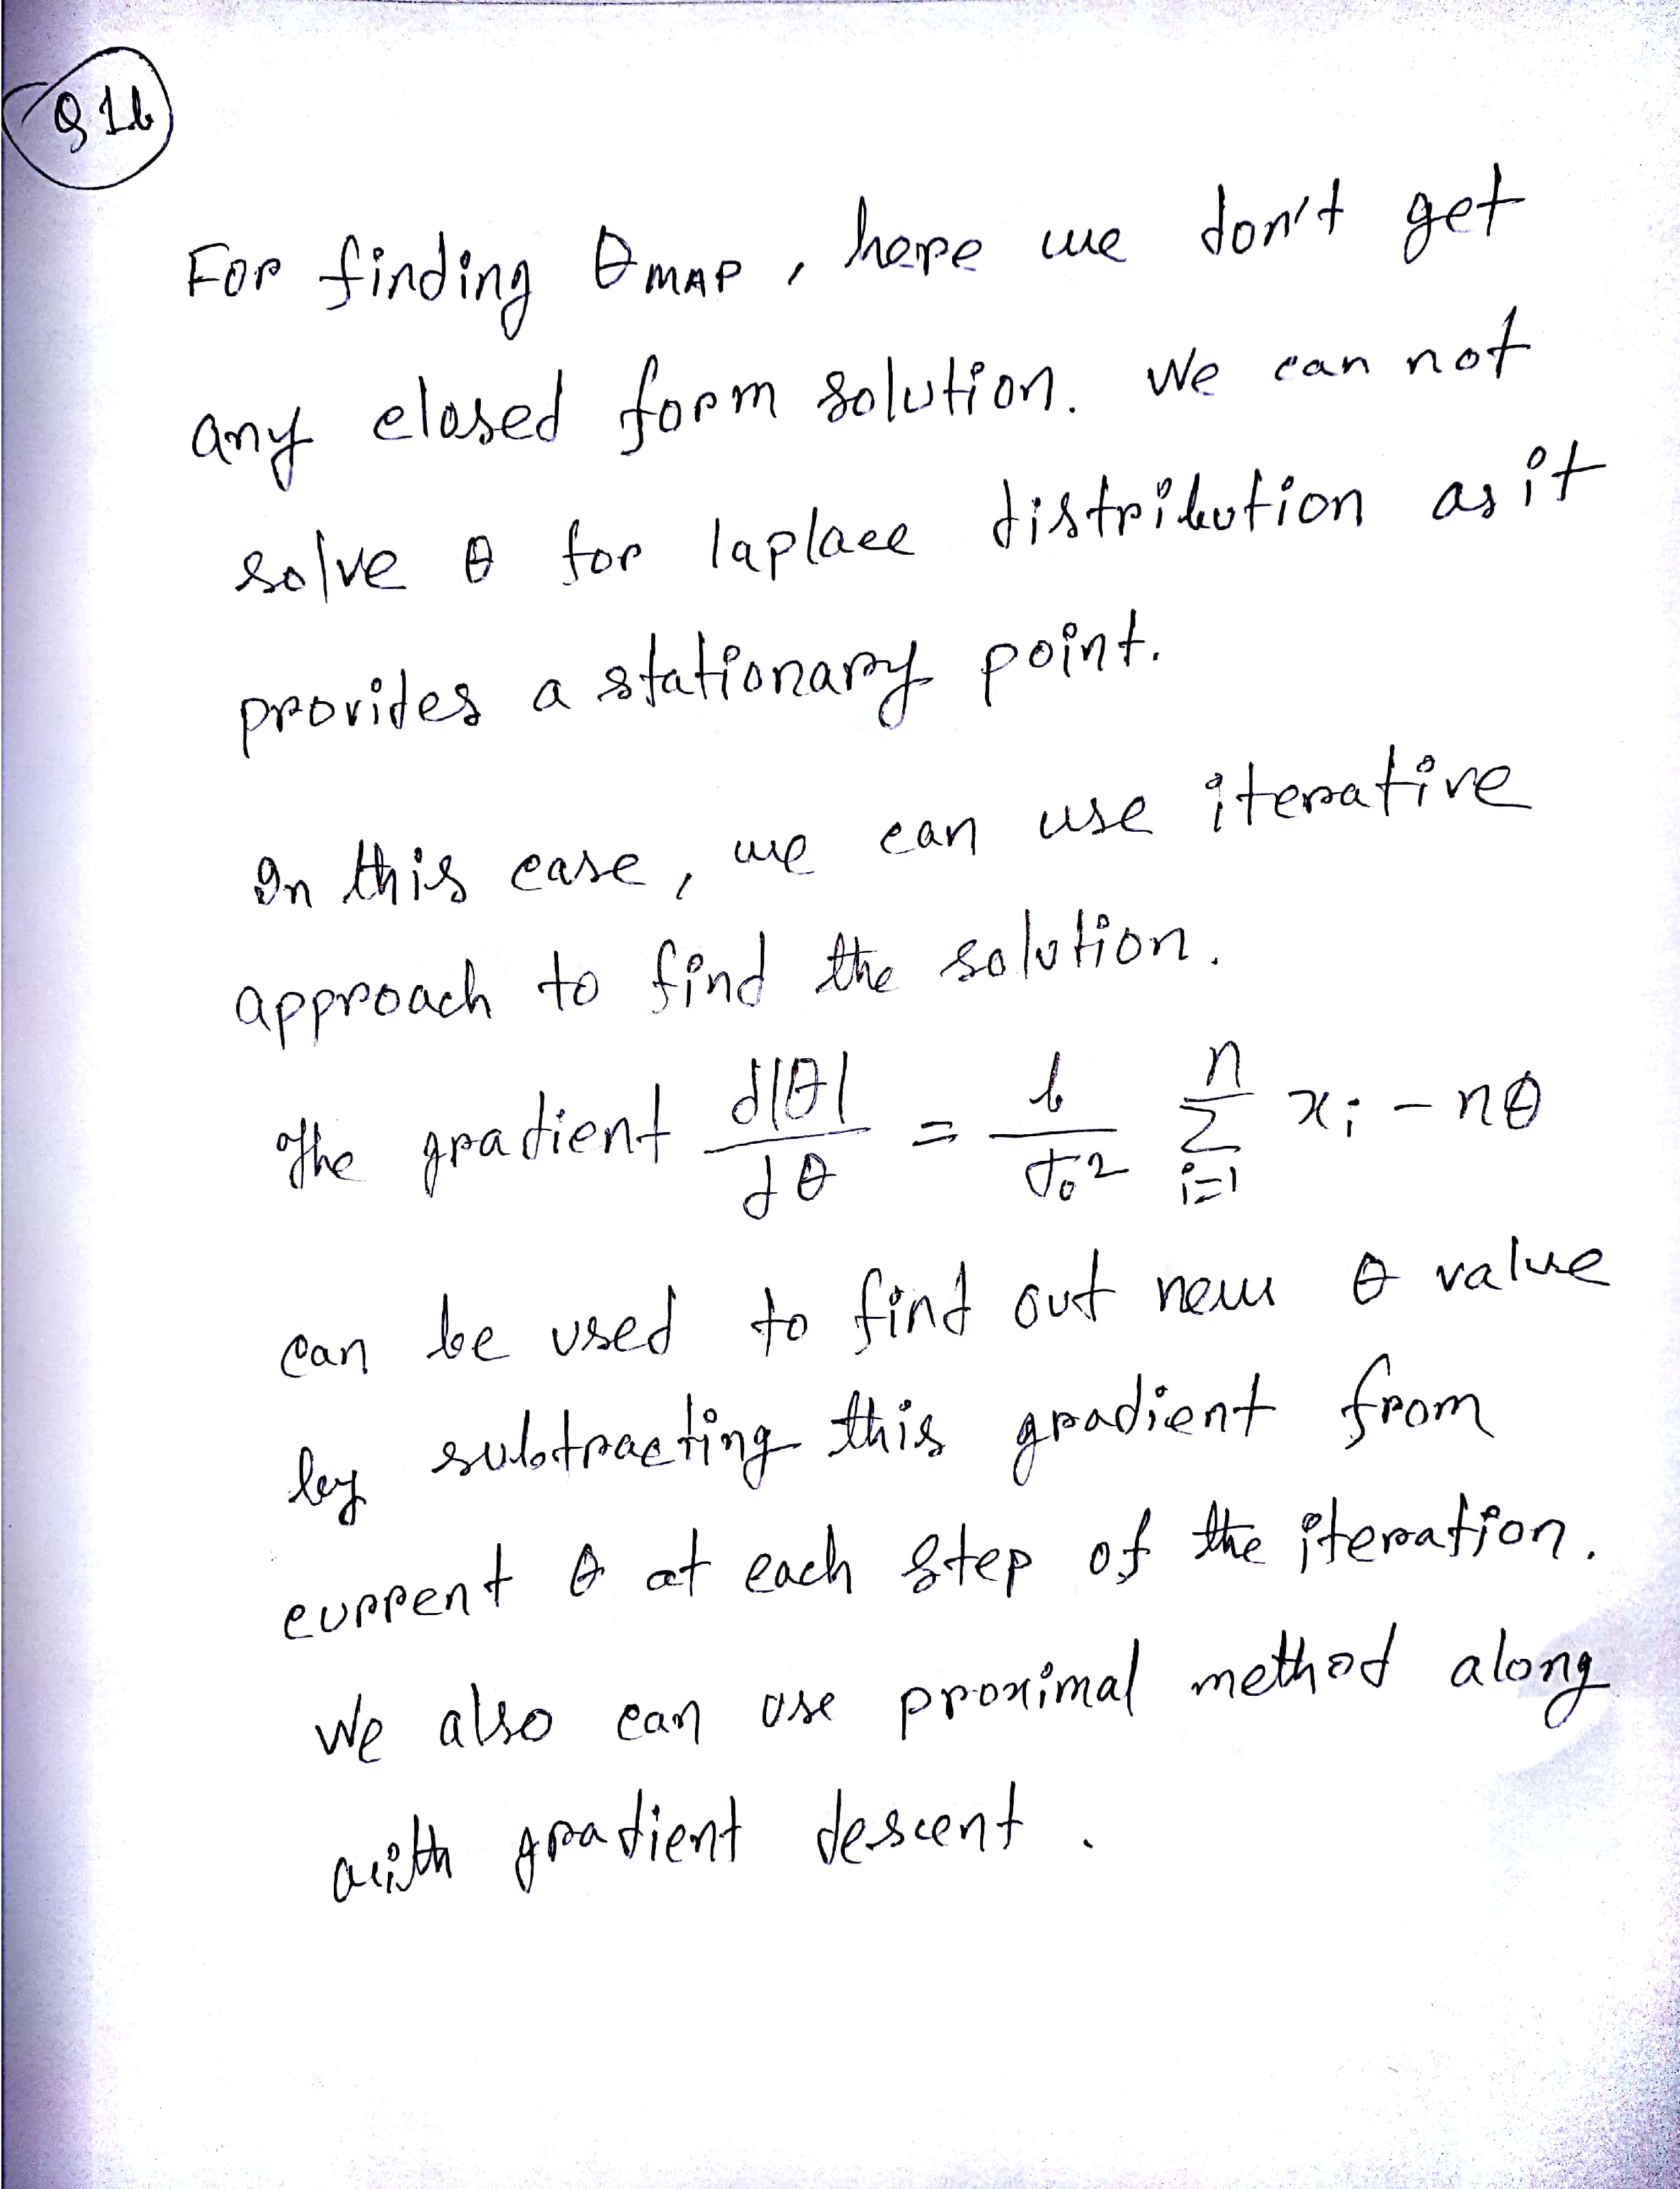 Q 1b
For finding θ MAP , here we don't get
any closed form solution. We can not
solve θ for laplace distribution as it
provides a stationary point.
In this case , we can use iterative
approach to find the solution.
The gradient d|θ|/dθ = b/σ₀² Σᵢ₌₁ⁿ xᵢ - nθ
can be used to find out new θ value
by subtracting this gradient from
current θ at each step of the iteration.
We also can use proximal method along
with gradient descent .